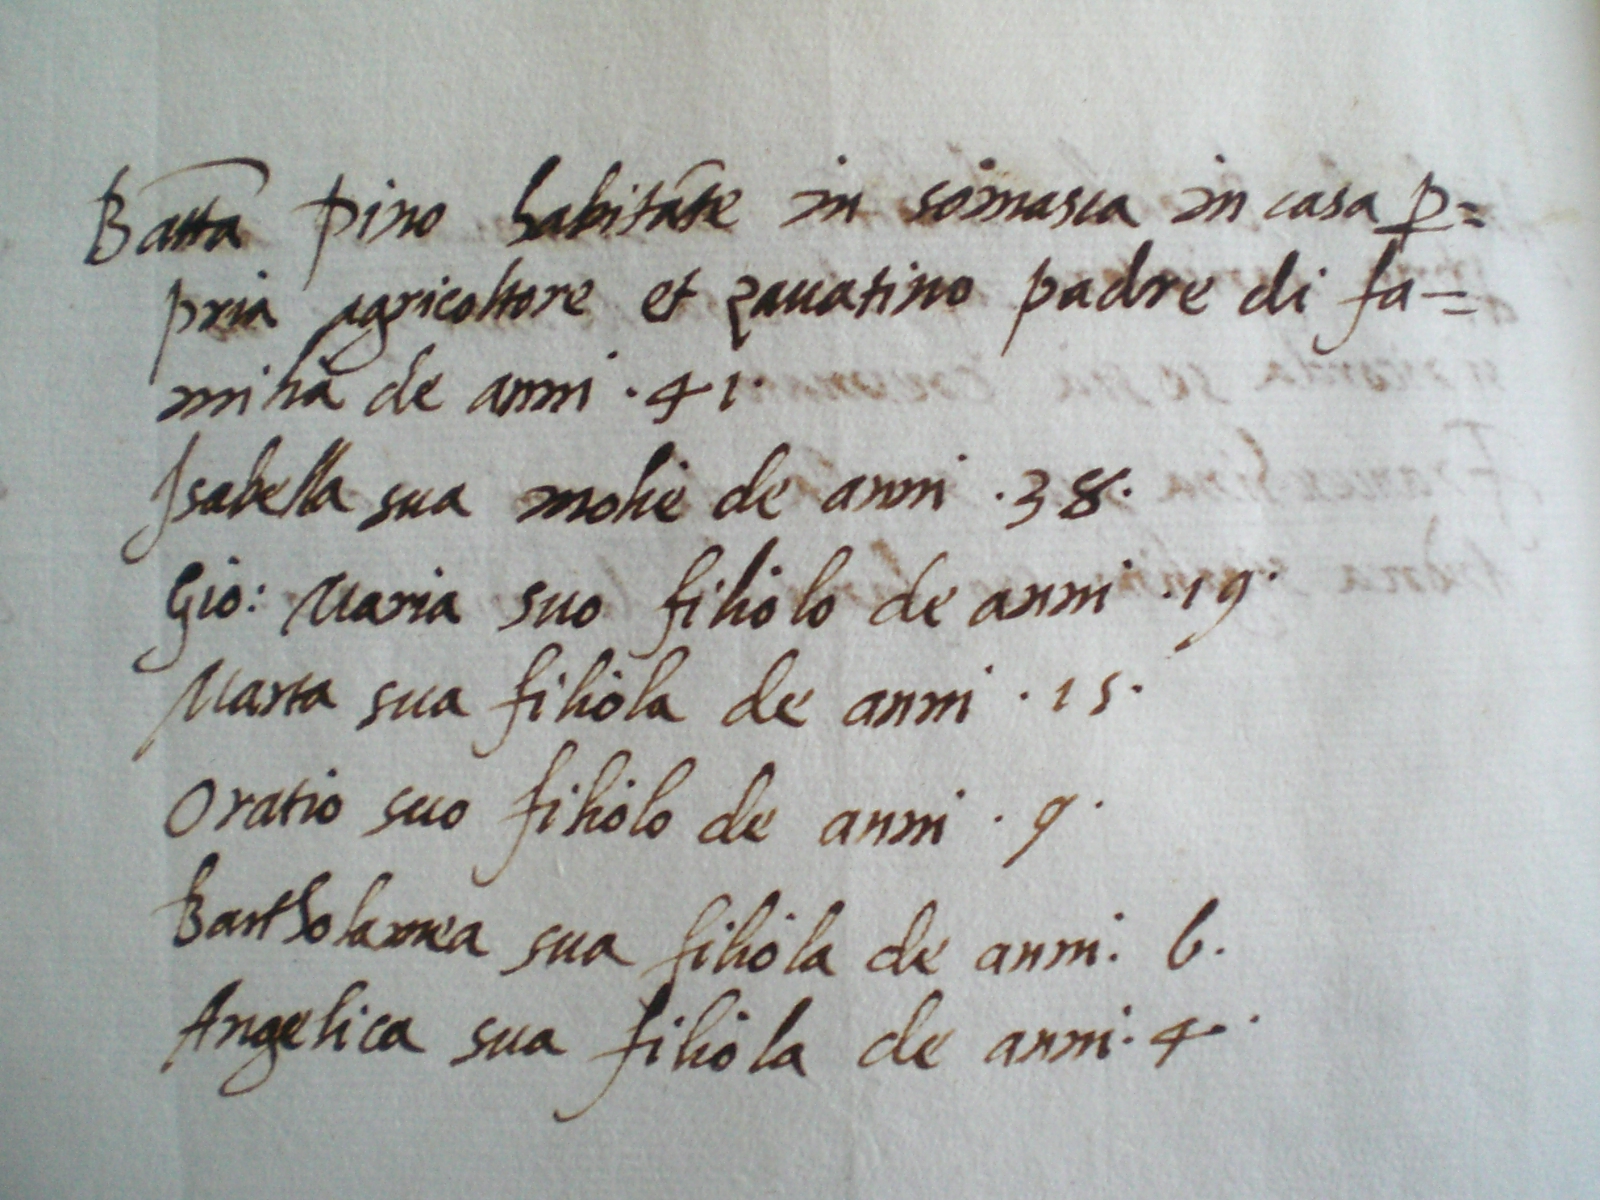 Batta Pino habitãte in sõmasca in casa p=
pria agricoltore et zavatino padre di fa=
milia de anni · 41 ·
Isabella sua molie de anni · 38 ·
Gio: Maria suo filiolo de anni · 19 ·
Marta sua filiola de anni · 15 ·
Oratio suo filiolo de anni · 9 ·
Bartholamea sua filiola de anni · 6 ·
Angelica sua filiola de anni · 4 ·